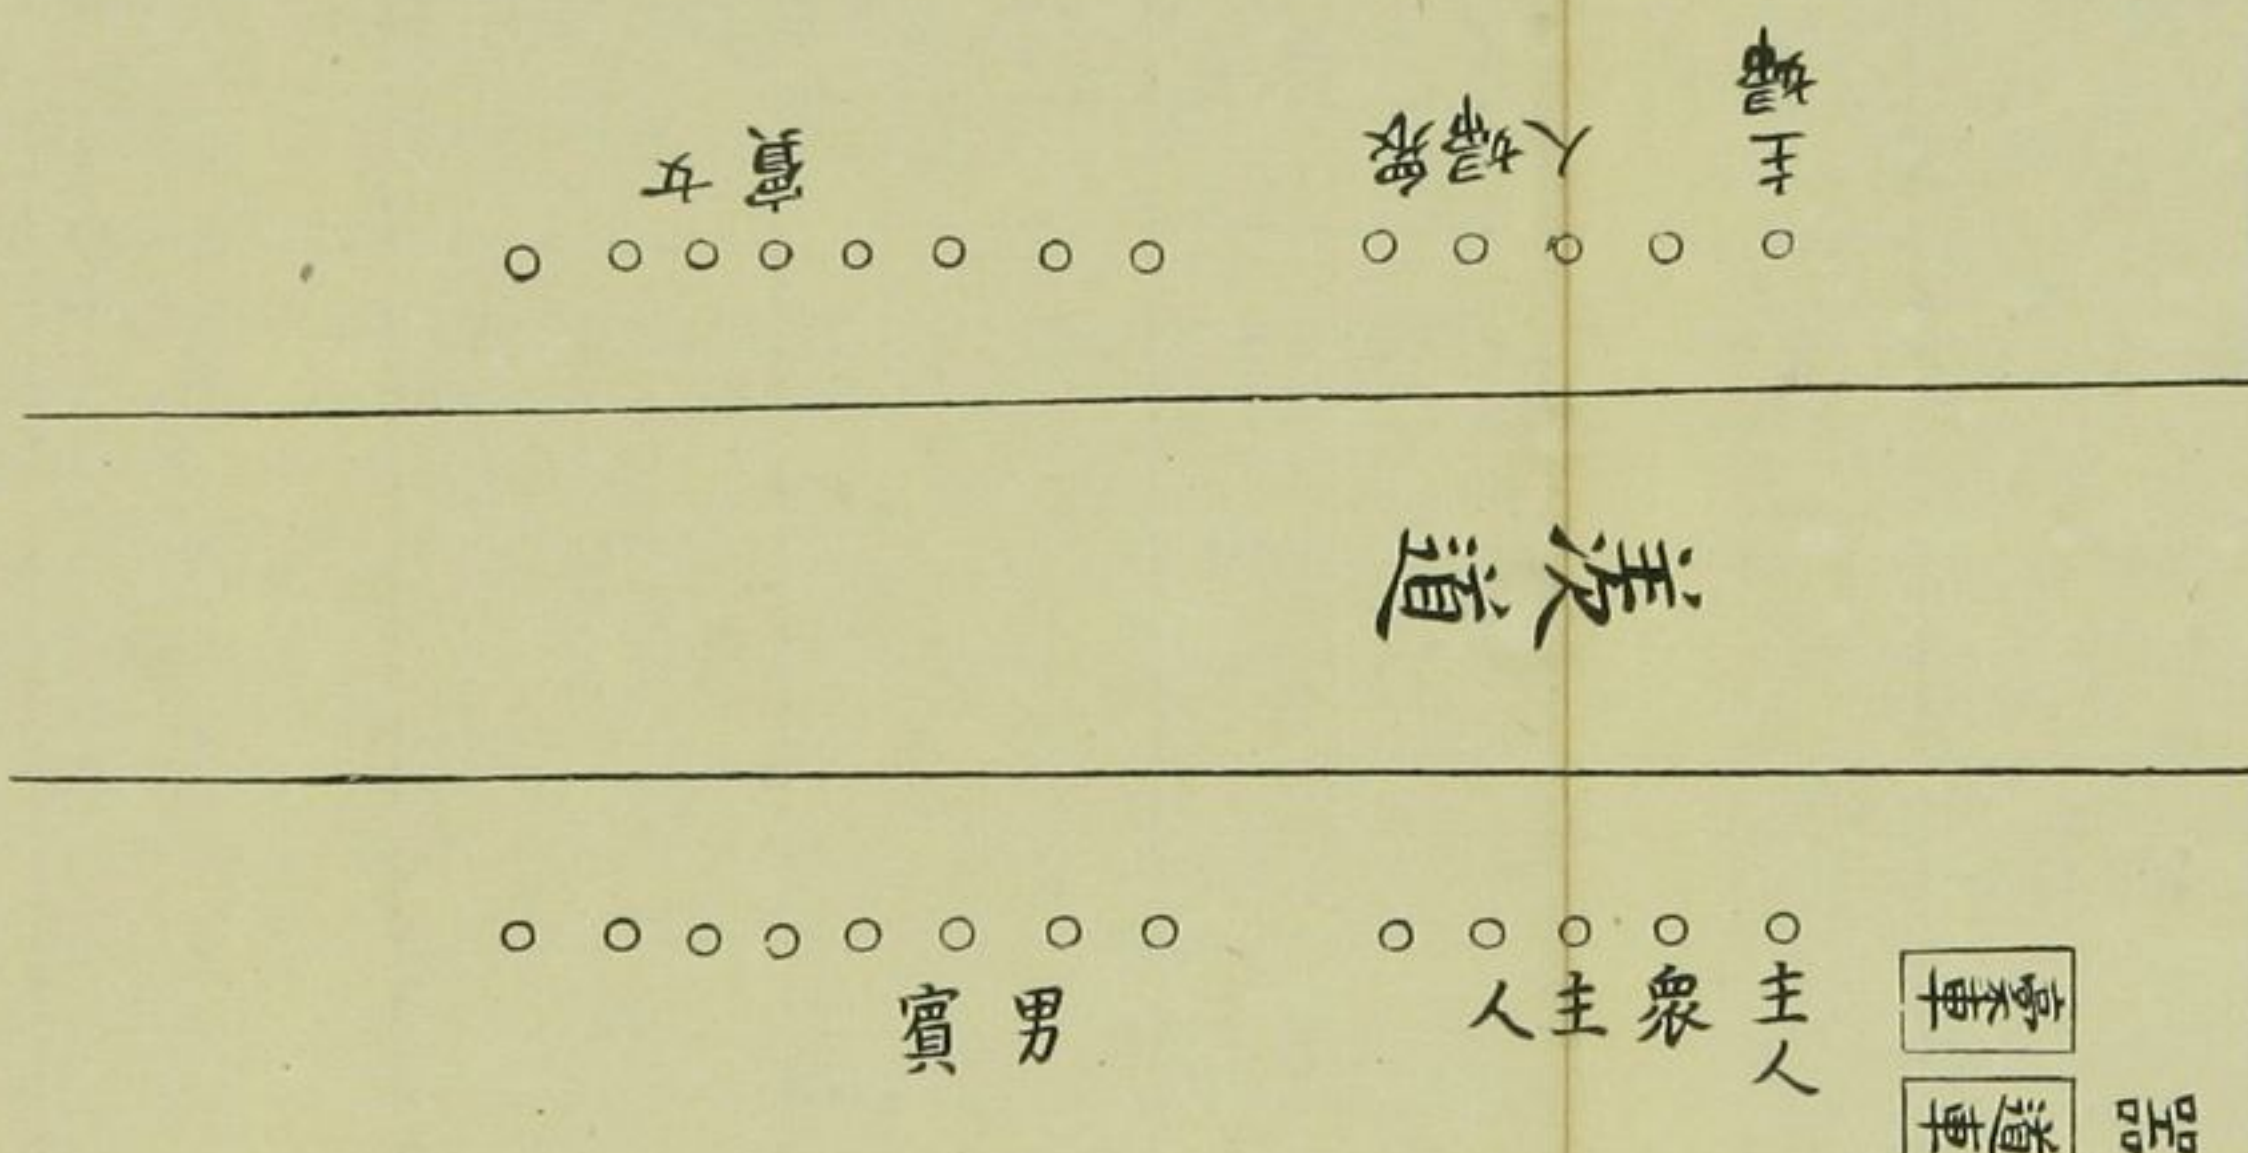 主婦
衆婦人
女賓
羨道
主人
衆主人
男賓
槀車
道車
噐